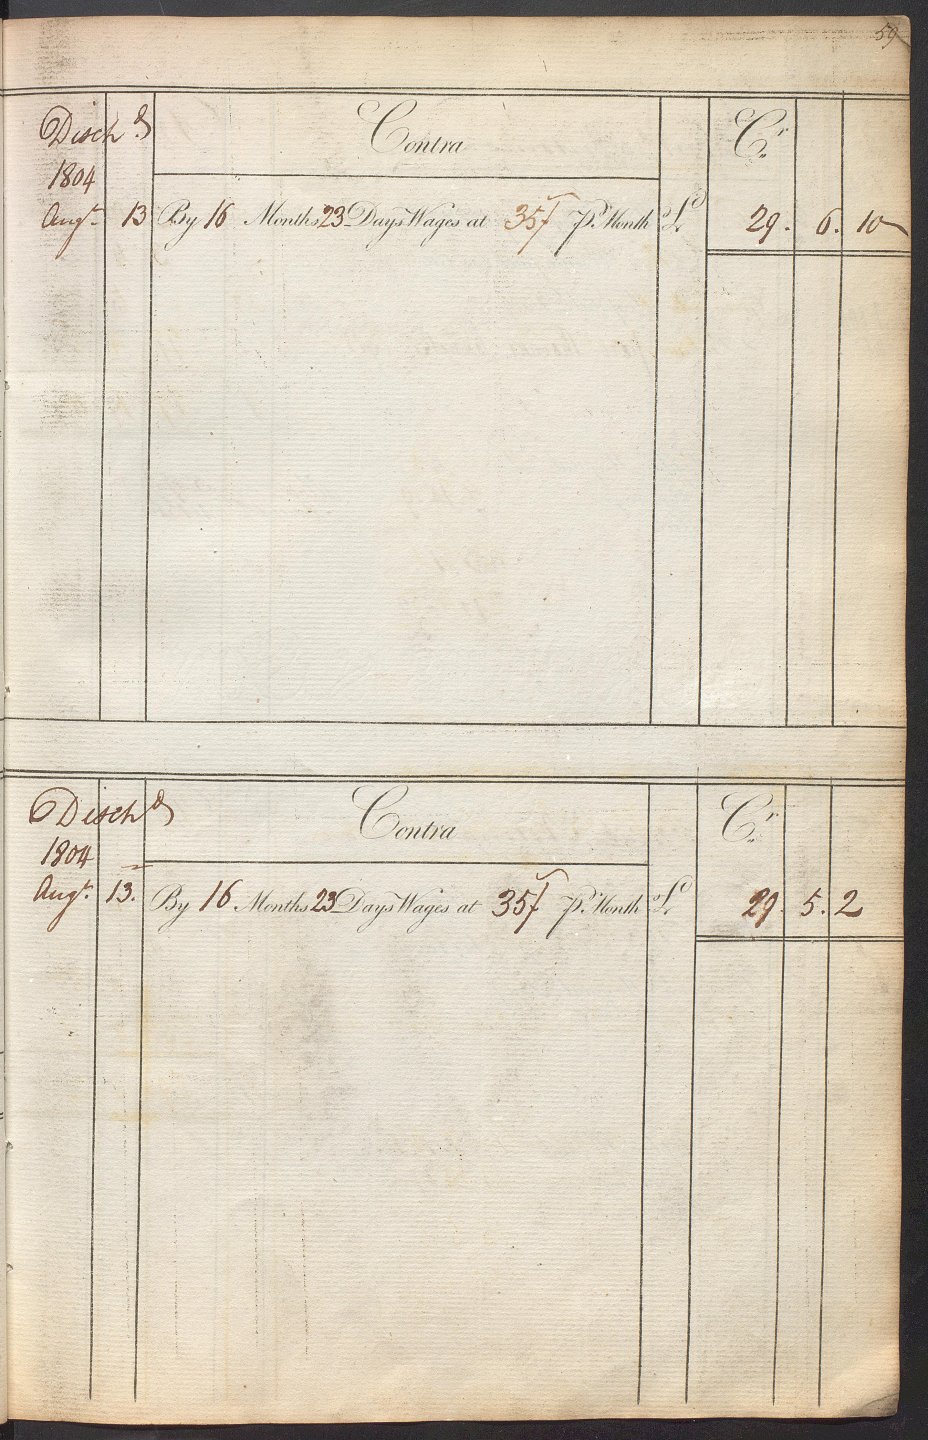 59
Disch d
Contra
Cr.
1804
Augt. 13 By 16 Months 23 Days Wages at 35/ pr. Month £ 29. 6. 10
Dischd
Contra
Cr.
1804
Augt. 13. By 16 Months 23 Days Wages at 35/ pr. Month £ 29. 5. 2